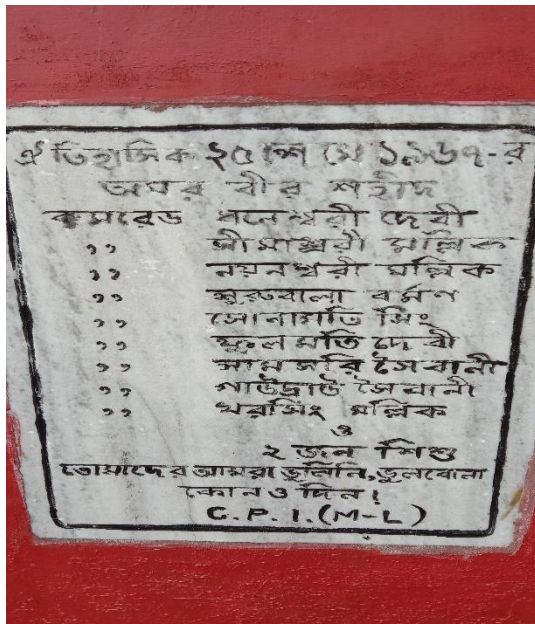 ঐতিহাসিক ২৫শে মে ১৯৬৭-র
অমর বীর শহীদ
কমরেড ধনেশ্বরী দেবী
,, সীমাশ্বরী মল্লিক
,, নয়নশ্বরী মল্লিক
,, শুরুবালা বর্মণ
,, সোনামতি সিং
,, ফুলমতি দেবী
,, সামসরি সৈবানী
,, গাউদ্রাউ সৈবানী
,, খরসিং মল্লিক
ও
২ জন শিশু
তোমাদের আমরা ভুলিনি, ভুলবোনা
কোনও দিন!
C.P.I.(M-L)